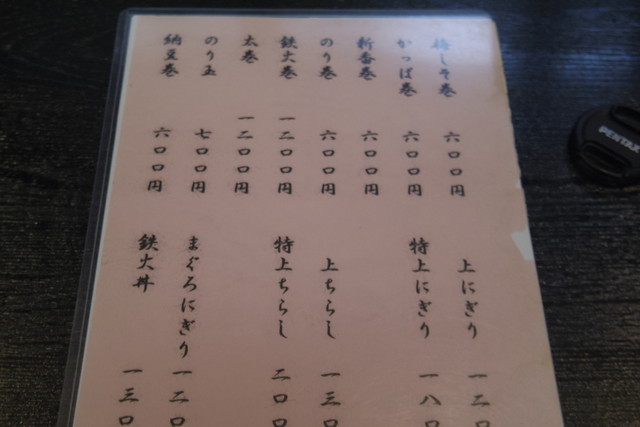 梅しそ巻 六〇〇円
かっぱ巻 六〇〇円
新香巻 六〇〇円
のり巻 六〇〇円
鉄火巻 一二〇〇円
太巻 一二〇〇円
のり玉 七〇〇円
納豆巻 六〇〇円
上にぎり 一二〇
特上にぎり 一八〇
上ちらし 一三〇
特上ちらし 二〇〇
まぐろにぎり 一二〇
鉄火丼 一三〇
PENTAX